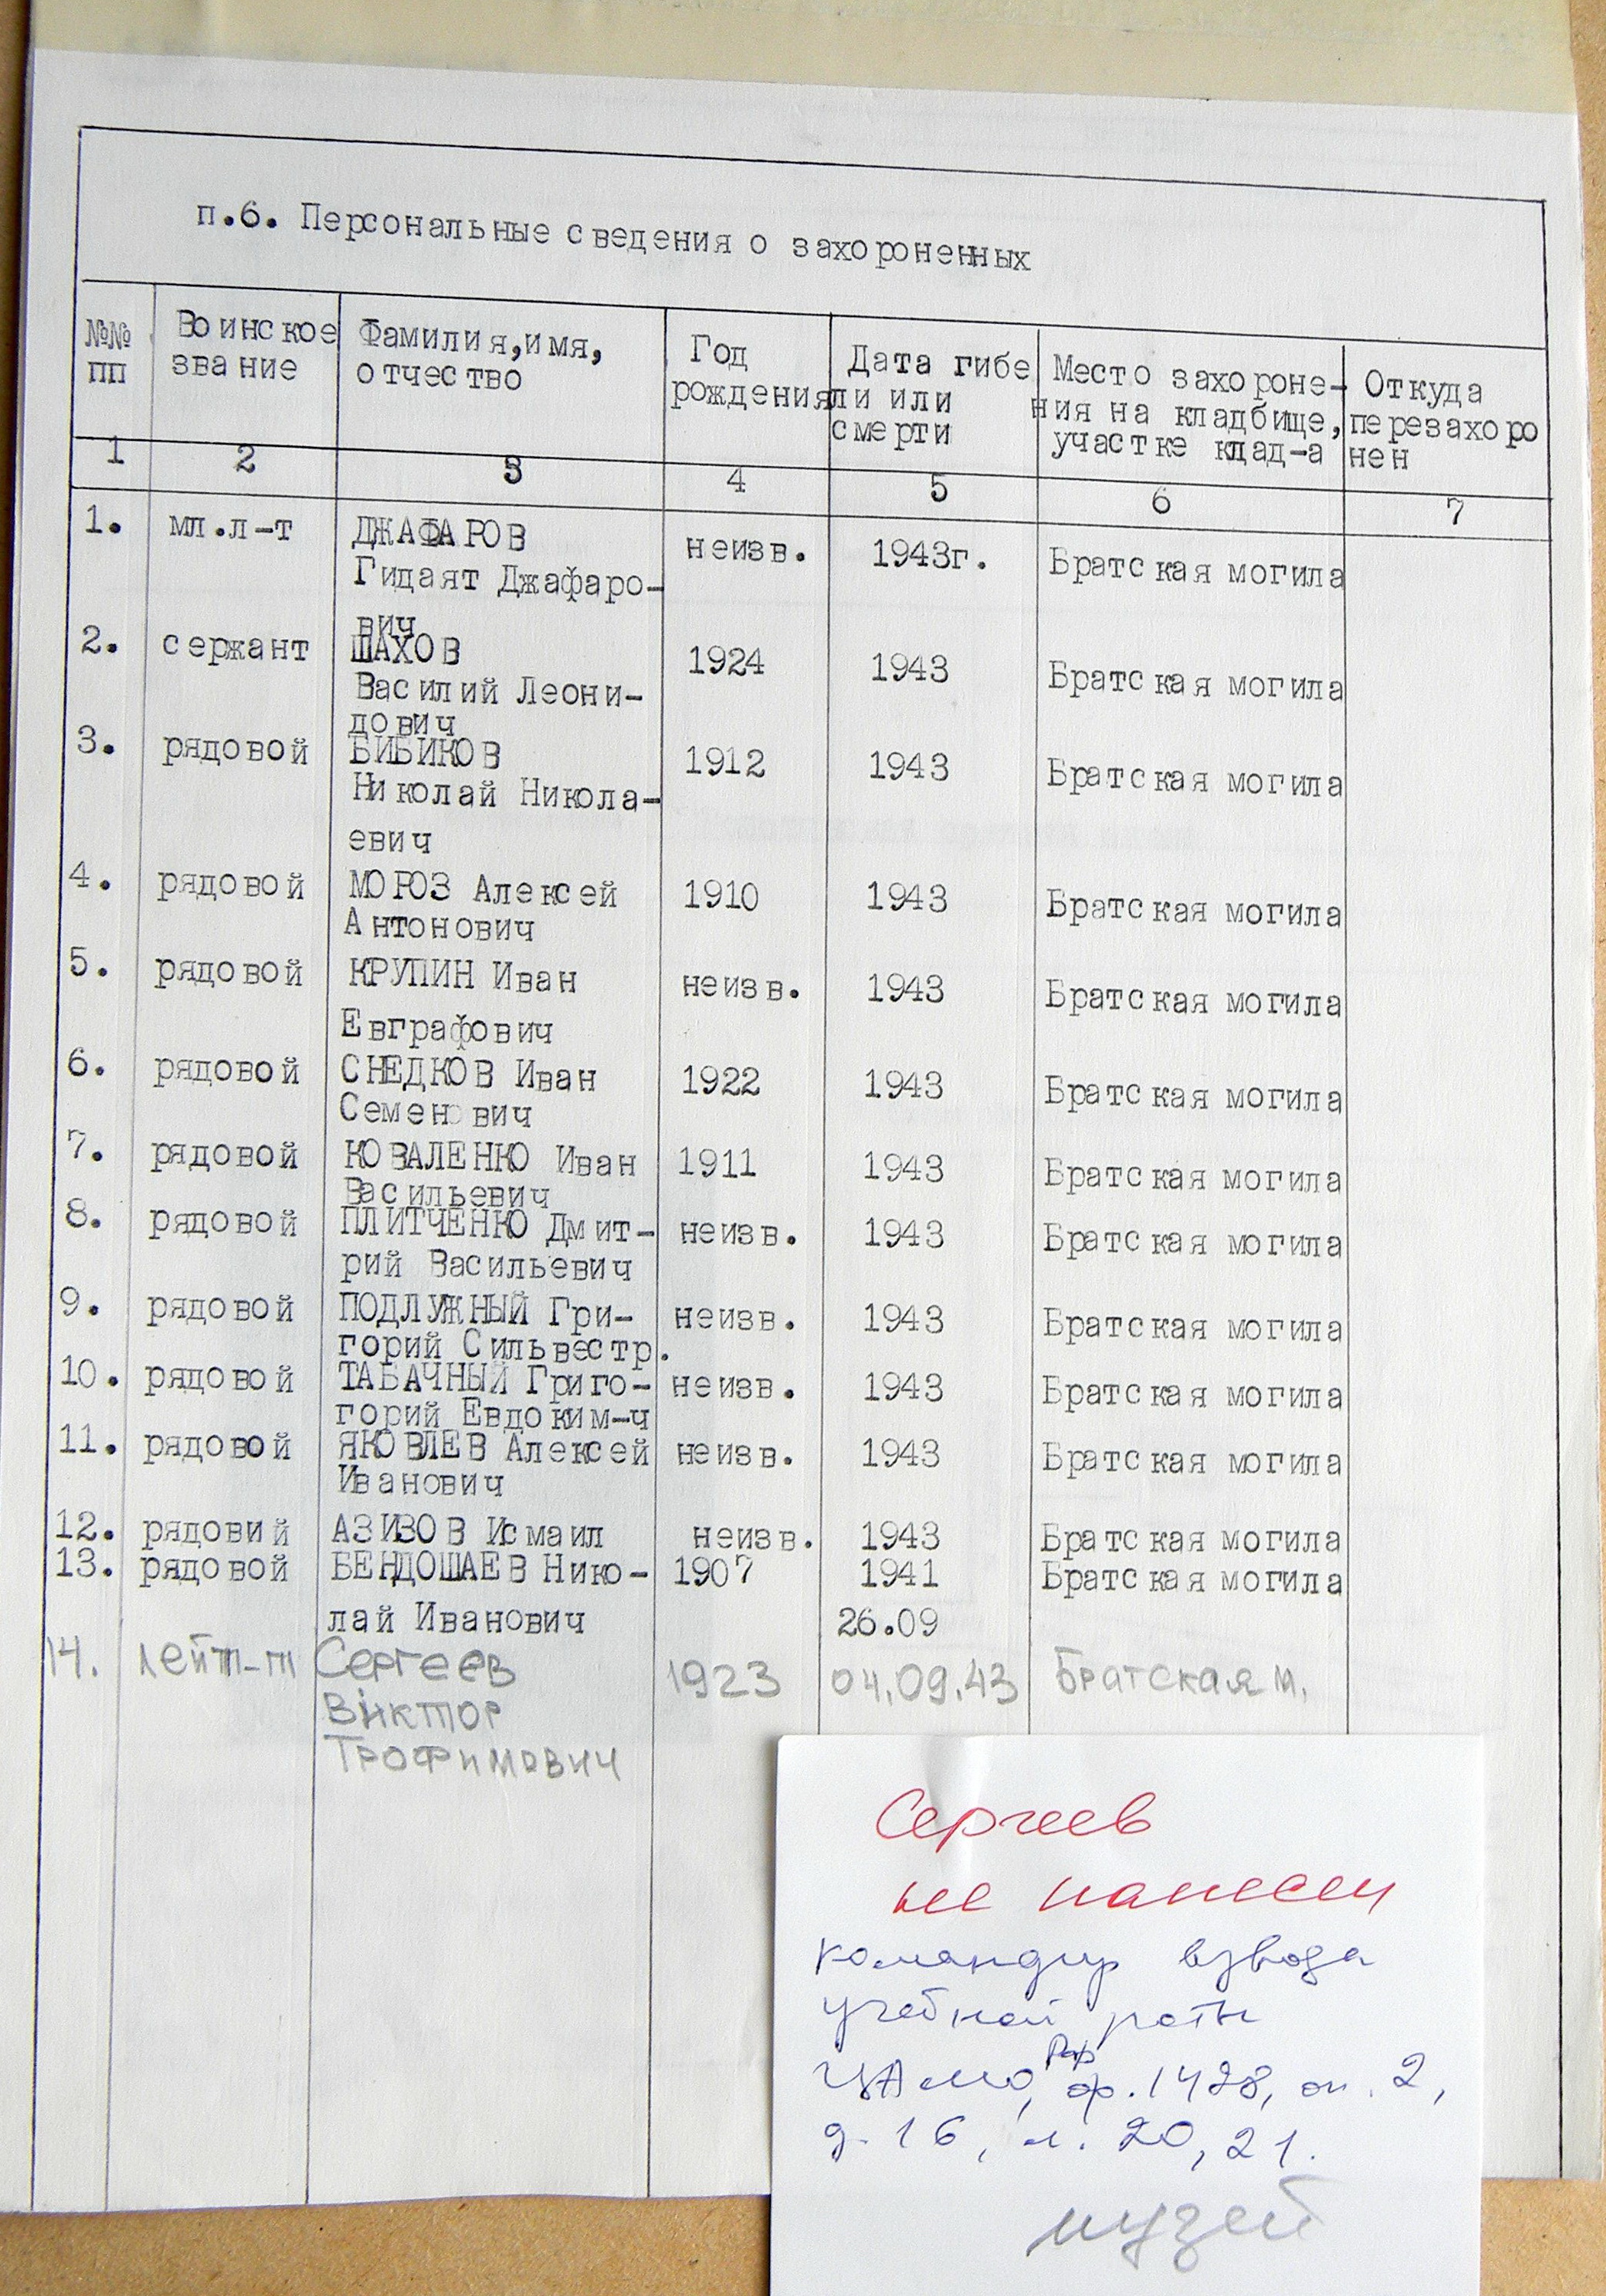 п.6. Персональные сведения о захороненных
№№ Воинское Фамилия,имя, Год Дата гибе Место захороне- Откуда
пп звание отчество рождения ли или ния на кладбище, перезахоро
смерти участке клад-а нен
1 2 3 4 5 6 7
1. мл.л-т ДЖАФАРОВ неизв. 1943г. Братская могила
Гидаят Джафаро-
вич
2. сержант ШАХОВ 1924 1943 Братская могила
Василий Леони-
дович
3. рядовой БИБИКОВ 1912 1943 Братская могила
Николай Никола-
евич
4. рядовой МОРОЗ Алексей 1910 1943 Братская могила
Антонович
5. рядовой КРУПИН Иван неизв. 1943 Братская могила
Евграфович
6. рядовой СНЕДКОВ Иван 1922 1943 Братская могила
Семенович
7. рядовой КОВАЛЕНКО Иван 1911 1943 Братская могила
Васильевич
8. рядовой ПЛИТЧЕНКО Дмит- неизв. 1943 Братская могила
рий Васильевич
9. рядовой ПОДЛУЖНЫЙ Гри- неизв. 1943 Братская могила
горий Сильвестр.
10. рядовой ТАБАЧНЫЙ Григо- неизв. 1943 Братская могила
горий Евдоким-ч
11. рядовой ЯКОВЛЕВ Алексей неизв. 1943 Братская могила
Иванович
12. рядовий АЗИЗОВ Исмаил неизв. 1943 Братская могила
13. рядовой БЕНДОШАЕВ Нико- 1907 1941 Братская могила
лай Иванович 26.09
14. лейт-т Сергеев 1923 04.09.43 Братская м.
Виктор
Трофимович
Сергеев
не нанесен
командир взвода
учебной роты
ЦАМО, ф.1428, оп.2,
д.16, л.20,21.
музей